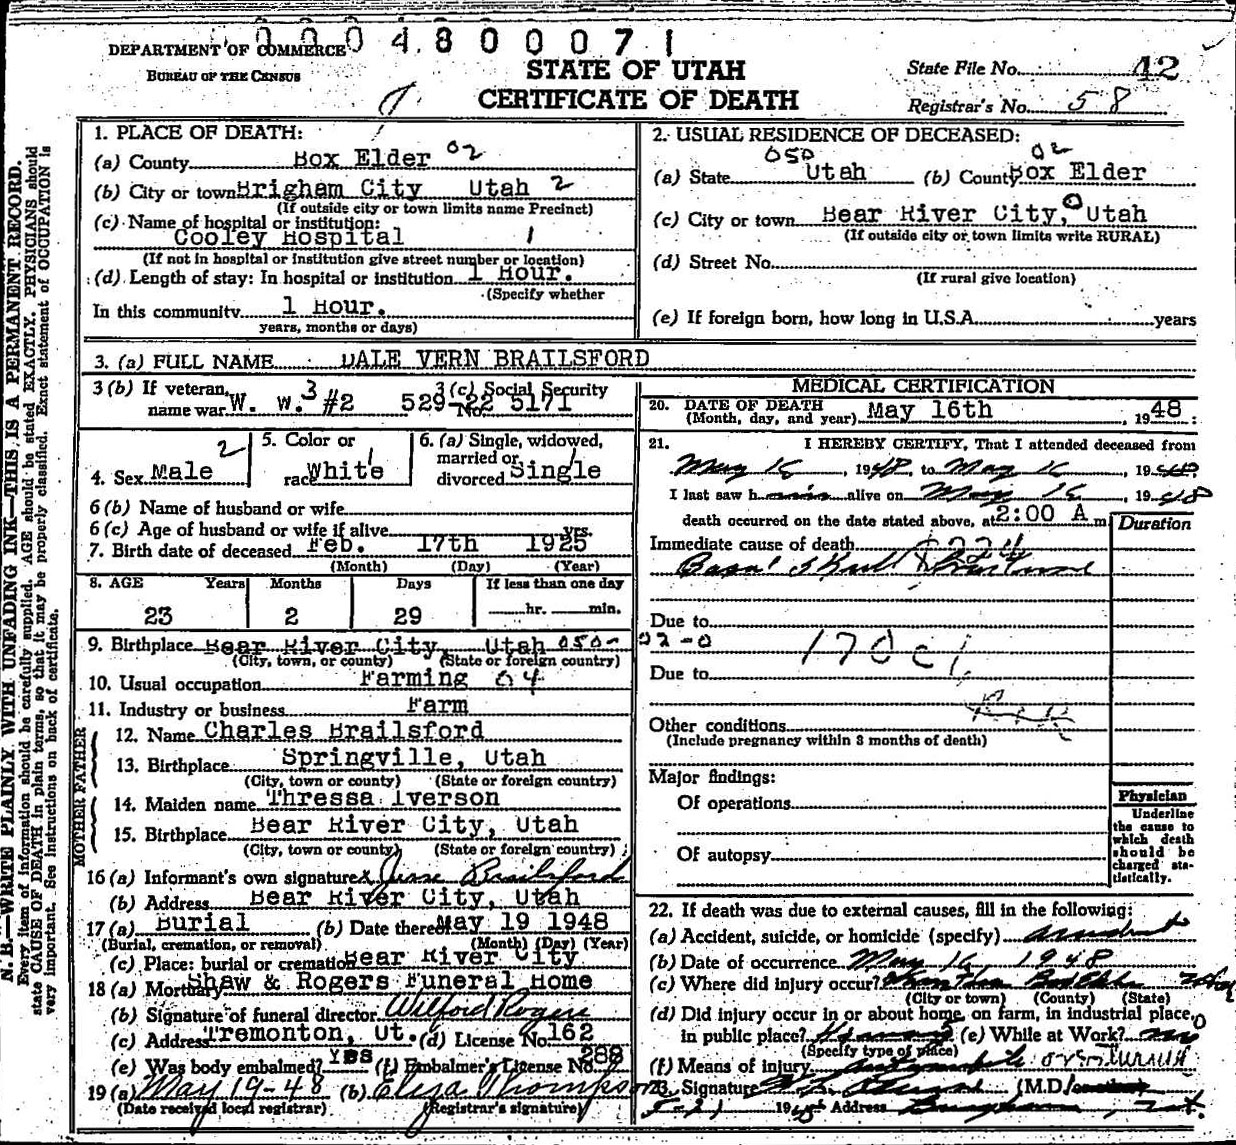 0004800071
DEPARTMENT OF COMMERCE
BUREAU OF THE CENSUS
STATE OF UTAH
CERTIFICATE OF DEATH
State File No. 42
Registrar's No. 58
N. B.—WRITE PLAINLY WITH UNFADING INK—THIS IS A PERMANENT RECORD.
Every item of information should be carefully supplied. AGE should be stated EXACTLY. PHYSICIANS should
state CAUSE OF DEATH in plain terms, so that it may be properly classified. Exact statement of OCCUPATION is
very important. See instructions on back of certificate.
1. PLACE OF DEATH:
(a) County Box Elder 02
(b) City or town Brigham City Utah 2
(If outside city or town limits name Precinct)
(c) Name of hospital or institution:
Cooley Hospital 1
(If not in hospital or institution give street number or location)
(d) Length of stay: In hospital or institution 1 Hour.
(Specify whether
In this community 1 Hour.
years, months or days)
2. USUAL RESIDENCE OF DECEASED:
050 02
(a) State Utah (b) County Box Elder
(c) City or town Bear River City, 0 Utah
(If outside city or town limits write RURAL)
(d) Street No.
(If rural give location)
(e) If foreign born, how long in U.S.A. years
3. (a) FULL NAME DALE VERN BRAILSFORD
3 (b) If veteran, name war W. W. 3 #2
3 (c) Social Security No. 529-22 5171
4. Sex Male 2
5. Color or race White 1
6. (a) Single, widowed, married or divorced Single 1
6 (b) Name of husband or wife
6 (c) Age of husband or wife if alive yrs.
7. Birth date of deceased Feb. 17th 1925
(Month) (Day) (Year)
8. AGE Years Months Days If less than one day
23 2 29 hr. min.
9. Birthplace Bear River City, Utah 050-02-0
(City, town, or county) (State or foreign country)
10. Usual occupation Farming 04
11. Industry or business Farm
FATHER
12. Name Charles Brailsford
13. Birthplace Springville, Utah
(City, town or county) (State or foreign country)
MOTHER
14. Maiden name Thressa Iverson
15. Birthplace Bear River City, Utah
(City, town or county) (State or foreign country)
16 (a) Informant's own signature x Jesse Brailsford
(b) Address Bear River City, Utah
17 (a) Burial (b) Date thereof May 19 1948
(Burial, cremation, or removal) (Month) (Day) (Year)
(c) Place: burial or cremation Bear River City
18 (a) Mortuary Shaw & Rogers Funeral Home
(b) Signature of funeral director Wilford Rogers
(c) Address Tremonton, Ut. (d) License No. 162
(e) Was body embalmed? Yes (f) Embalmer's License No. 288
19 (a) May 19-48 (b) Eliza Thompson
(Date received local registrar) (Registrar's signature)
MEDICAL CERTIFICATION
20. DATE OF DEATH May 16th 1948
(Month, day, and year)
21. I HEREBY CERTIFY, That I attended deceased from
May 16, 1948, to May 16, 1948.
I last saw him alive on May 16, 1948
death occurred on the date stated above, at 2:00 A m.
Duration
Immediate cause of death
Basal Skull Fracture
Due to
170c1
Due to
Other conditions
(Include pregnancy within 3 months of death)
Major findings:
Of operations
Of autopsy
Physician
Underline
the cause to
which death
should be
charged sta-
tistically.
22. If death was due to external causes, fill in the following:
(a) Accident, suicide, or homicide (specify) accident
(b) Date of occurrence May 16 1948
(c) Where did injury occur? Box Elder Utah
(City or town) (County) (State)
(d) Did injury occur in or about home, on farm, in industrial place,
in public place? Highway (e) While at Work? no 0
(Specify type of place)
(f) Means of injury automobile overturned
23. Signature (M.D.
5-21 1948 Address Brigham, Ut.